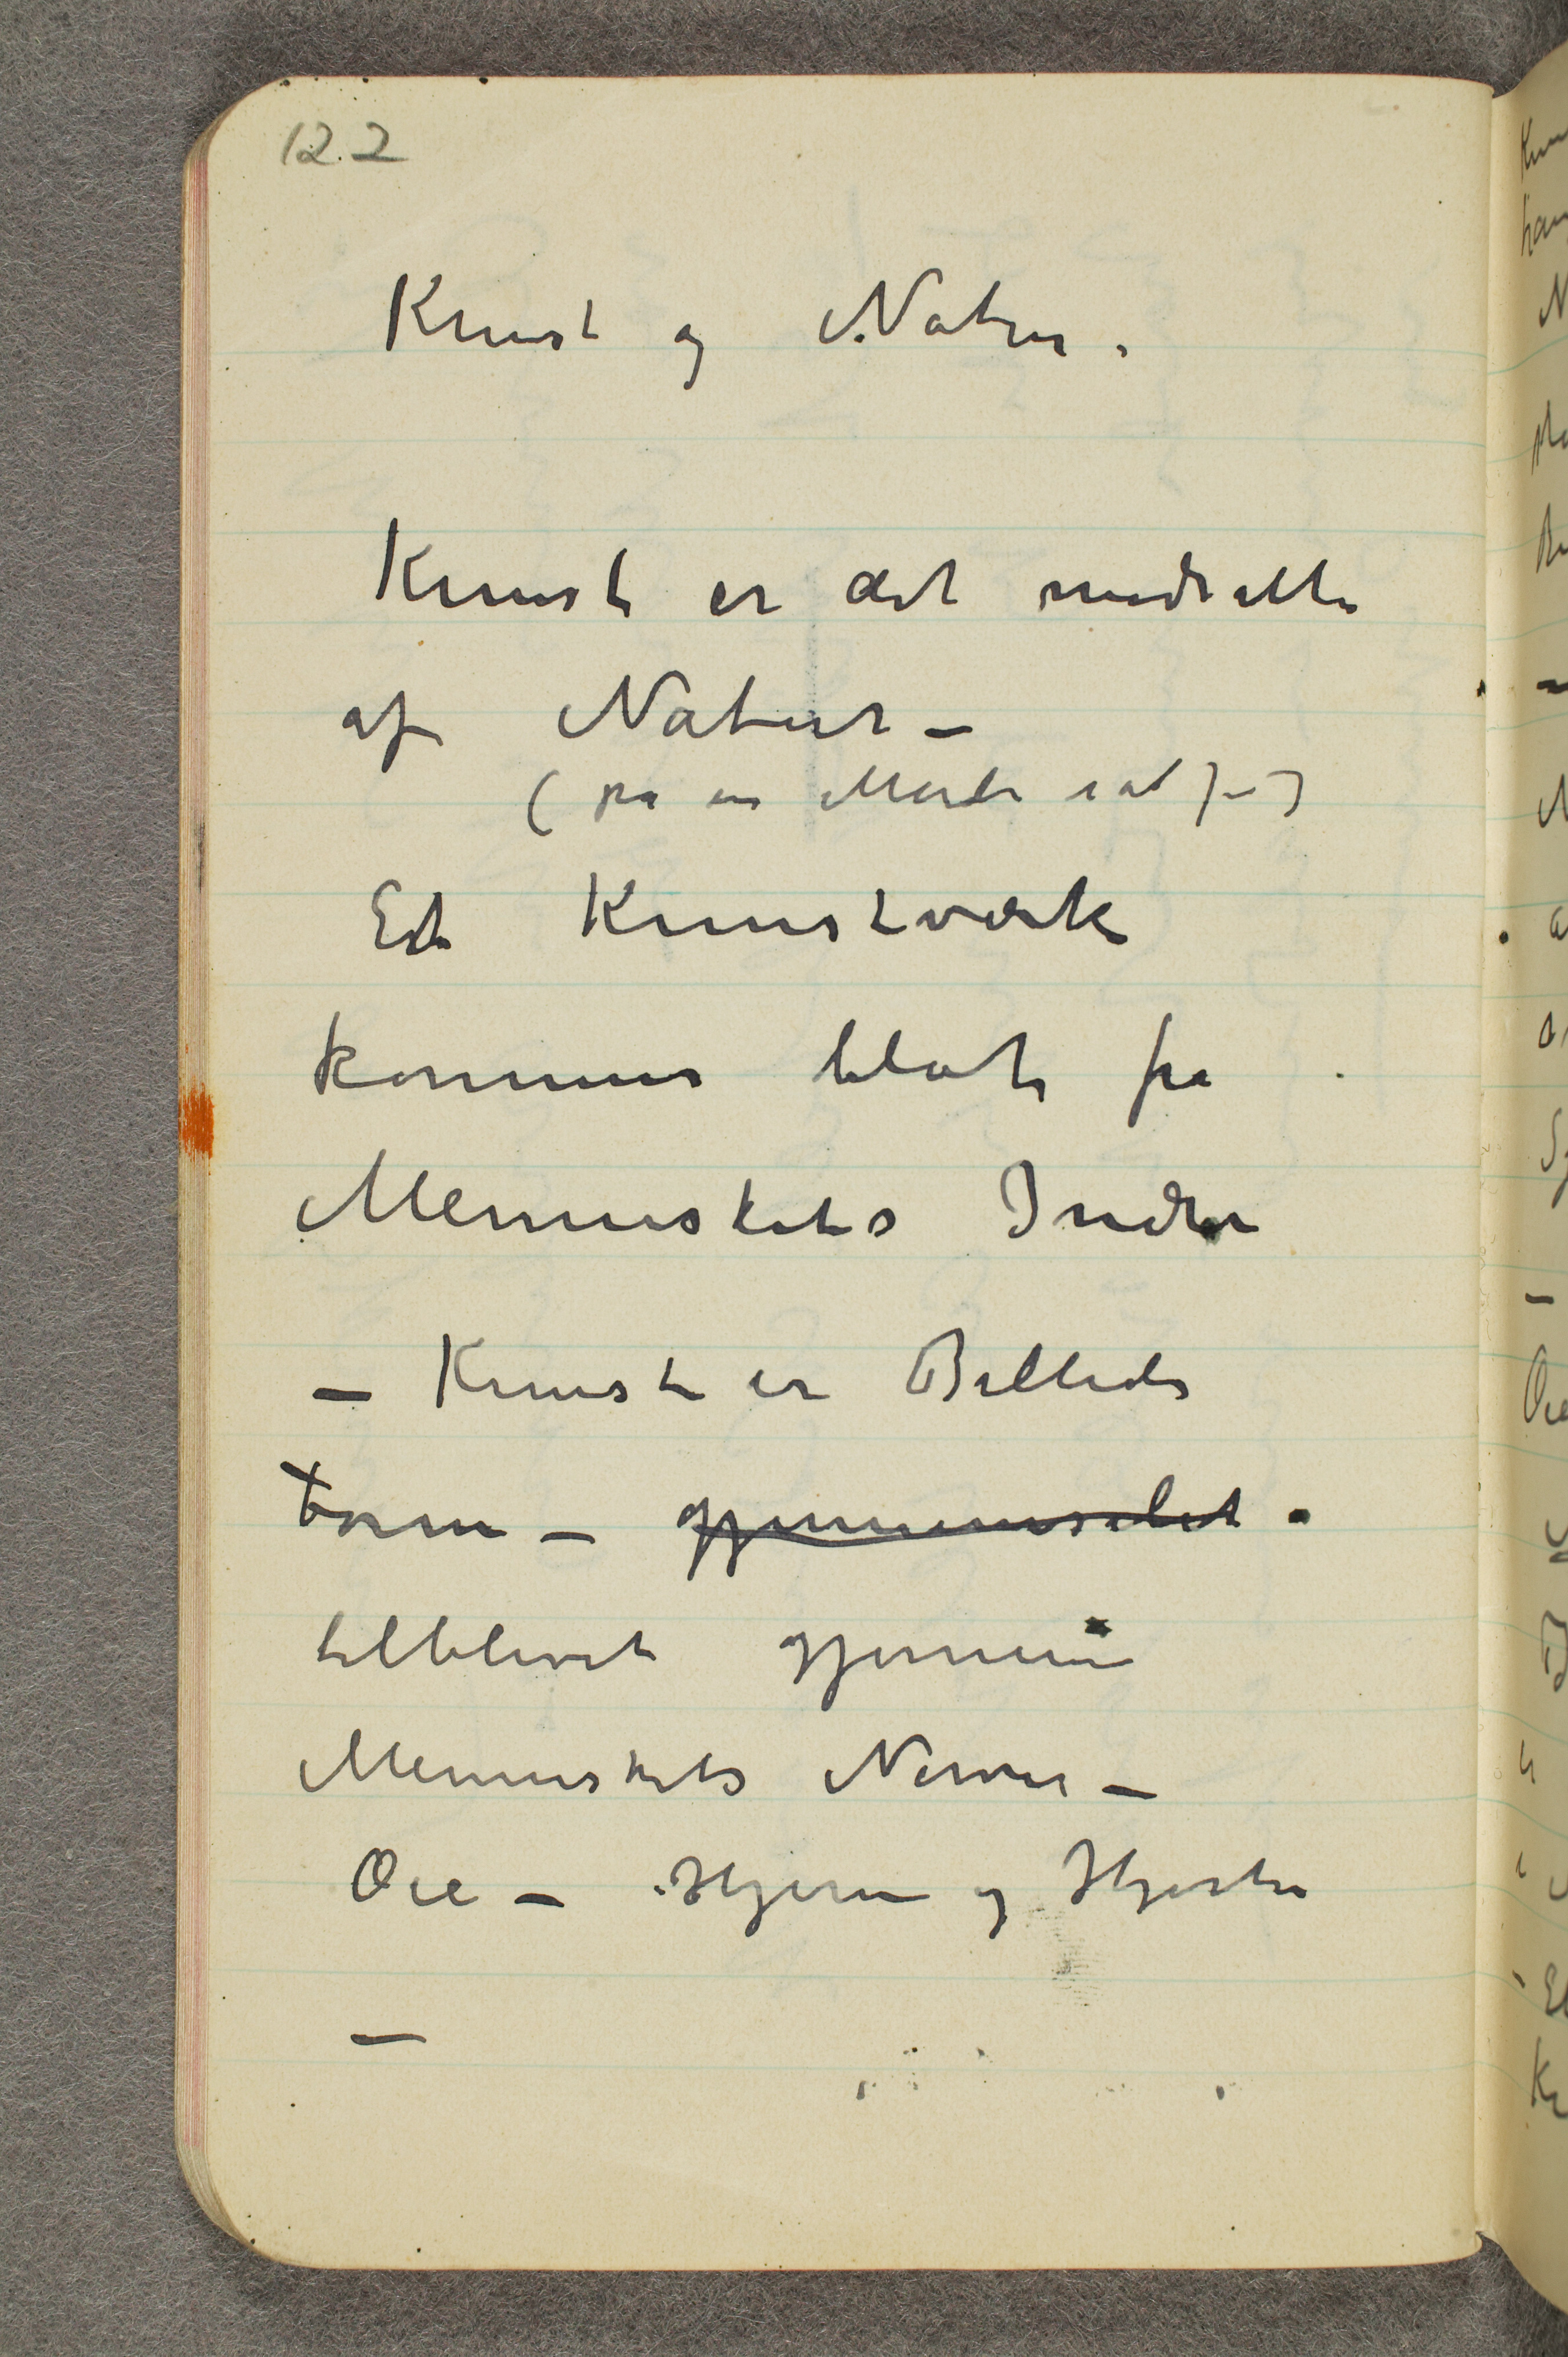 122
Kunst og Natur.
Kunst er det modsatte
af Natur –
(på en Måde sat)–)
Et Kunstværk
kommer blot fra
Menneskets Indre
– Kunst er Billedets
Form – gjennemsilet
tilblevet gjennem
Menneskets Nerver –
Øie – Hjerne og Hjerte
–